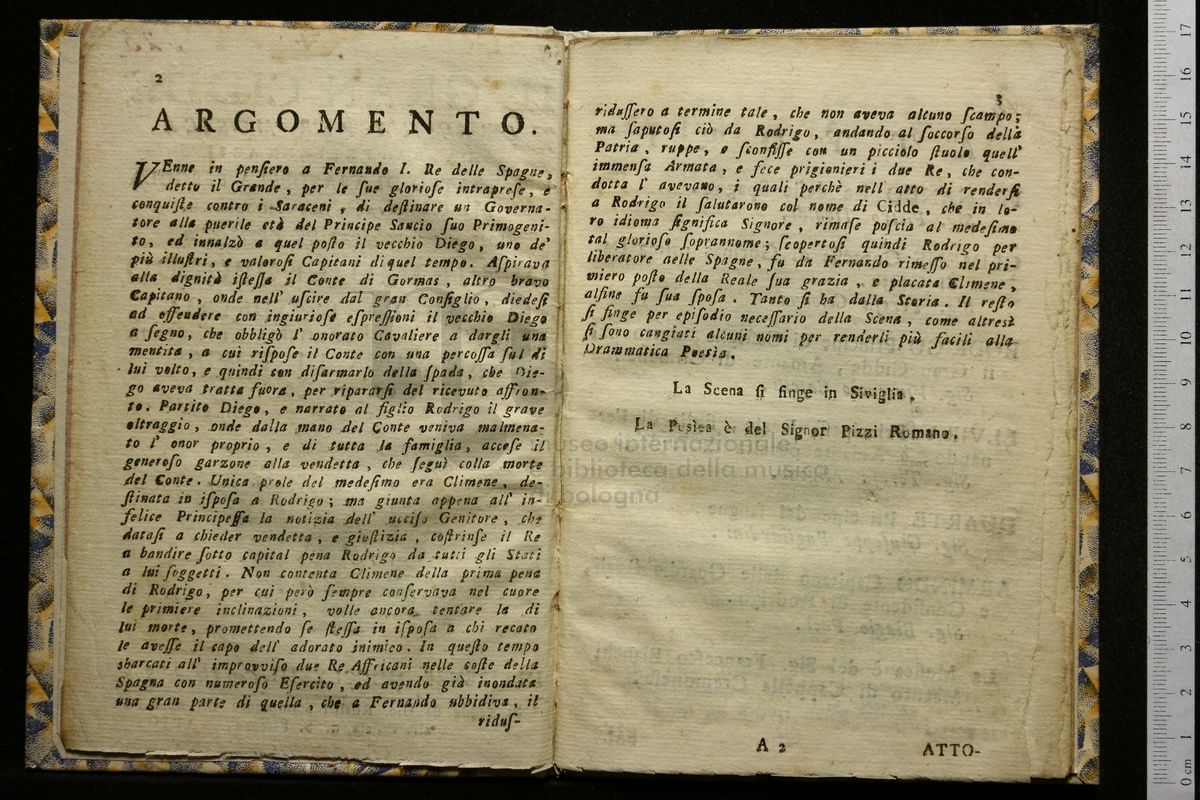 2
ARGOMENTO.
VEnne in penſiero a Fernando I. Re delle Spagne,
detto il Grande, per le ſue glorioſe intrapreſe, e
conquiſte contro i Saraceni, di deſtinare un Governa-
tore alla puerile età del Principe Sancio ſuo Primogeni-
to, ed innalzò a quel poſto il vecchio Diego, uno de'
più illuſtri, e valoroſi Capitani di quel tempo. Aſpirava
alla dignità iſteſſa il Conte di Gormas, altro bravo
Capitano, onde nell' uſcire dal gran Conſiglio, diedeſi
ad offendere con ingiurioſe eſpreſſioni il vecchio Diego
a ſegno, che obbligò l' onorato Cavaliere a dargli una
mentita, a cui riſpoſe il Conte con una percoſſa ſul di
lui volto, e quindi con diſarmarlo della ſpada, che Die-
go aveva tratta fuora, per ripararſi del ricevuto affron-
to. Partito Diego, e narrato al figlio Rodrigo il grave
oltraggio, onde dalla mano del Conte veniva malmena-
to l' onor proprio, e di tutta la famiglia, acceſe il
generoſo garzone alla vendetta, che ſeguì colla morte
del Conte. Unica prole del medeſimo era Climene, de-
ſtinata in iſpoſa a Rodrigo; ma giunta appena all' in-
felice Principeſſa la notizia dell' ucciſo Genitore, che
dataſi a chieder vendetta, e giuſtizia, coſtrinſe il Re
a bandire ſotto capital pena Rodrigo da tutti gli Stati
a lui ſoggetti. Non contenta Climene della prima pena
di Rodrigo, per cui però ſempre conſervava nel cuore
le primiere inclinazioni, volle ancora tentare la di
lui morte, promettendo ſe ſteſſa in iſpoſa a chi recato
le aveſſe il capo dell' adorato inimico. In queſto tempo
sbarcati all' improvviſo due Re Affricani nelle coſte della
Spagna con numeroſo Eſercito, ed avendo già inondata
una gran parte di quella, che a Fernando ubbidiva, il
riduſ-
3
riduſſero a termine tale, che non aveva alcuno ſcampo;
ma ſaputoſi ciò da Rodrigo, andando al ſoccorſo della
Patria, ruppe, e ſconfiſſe con un picciolo ſtuolo quell'
immenſa Armata, e fece prigionieri i due Re, che con-
dotta l' avevano, i quali perchè nell' atto di renderſi
a Rodrigo il ſalutarono col nome di Cidde, che in lo-
ro idioma ſignifica Signore, rimaſe poſcia al medeſimo
tal glorioſo ſoprannome; ſcopertoſi quindi Rodrigo per
liberatore delle Spagne, fu da Fernando rimeſſo nel pri-
miero poſto della Reale ſua grazia, e placata Climene,
alfine fu ſua ſpoſa. Tanto ſi ha dalla Storia. Il reſto
ſi finge per epiſodio neceſſario della Scena, come altresì
ſi ſono cangiati alcuni nomi per renderli più facili alla
Drammatica Poesìa.
La Scena ſi finge in Siviglia.
La Poesìa è del Signor Pizzi Romano.
museo internazionale
e biblioteca della musica
di bologna
A 2
ATTO-
0 cm 1 2 3 4 5 6 7 8 9 10 11 12 13 14 15 16 17